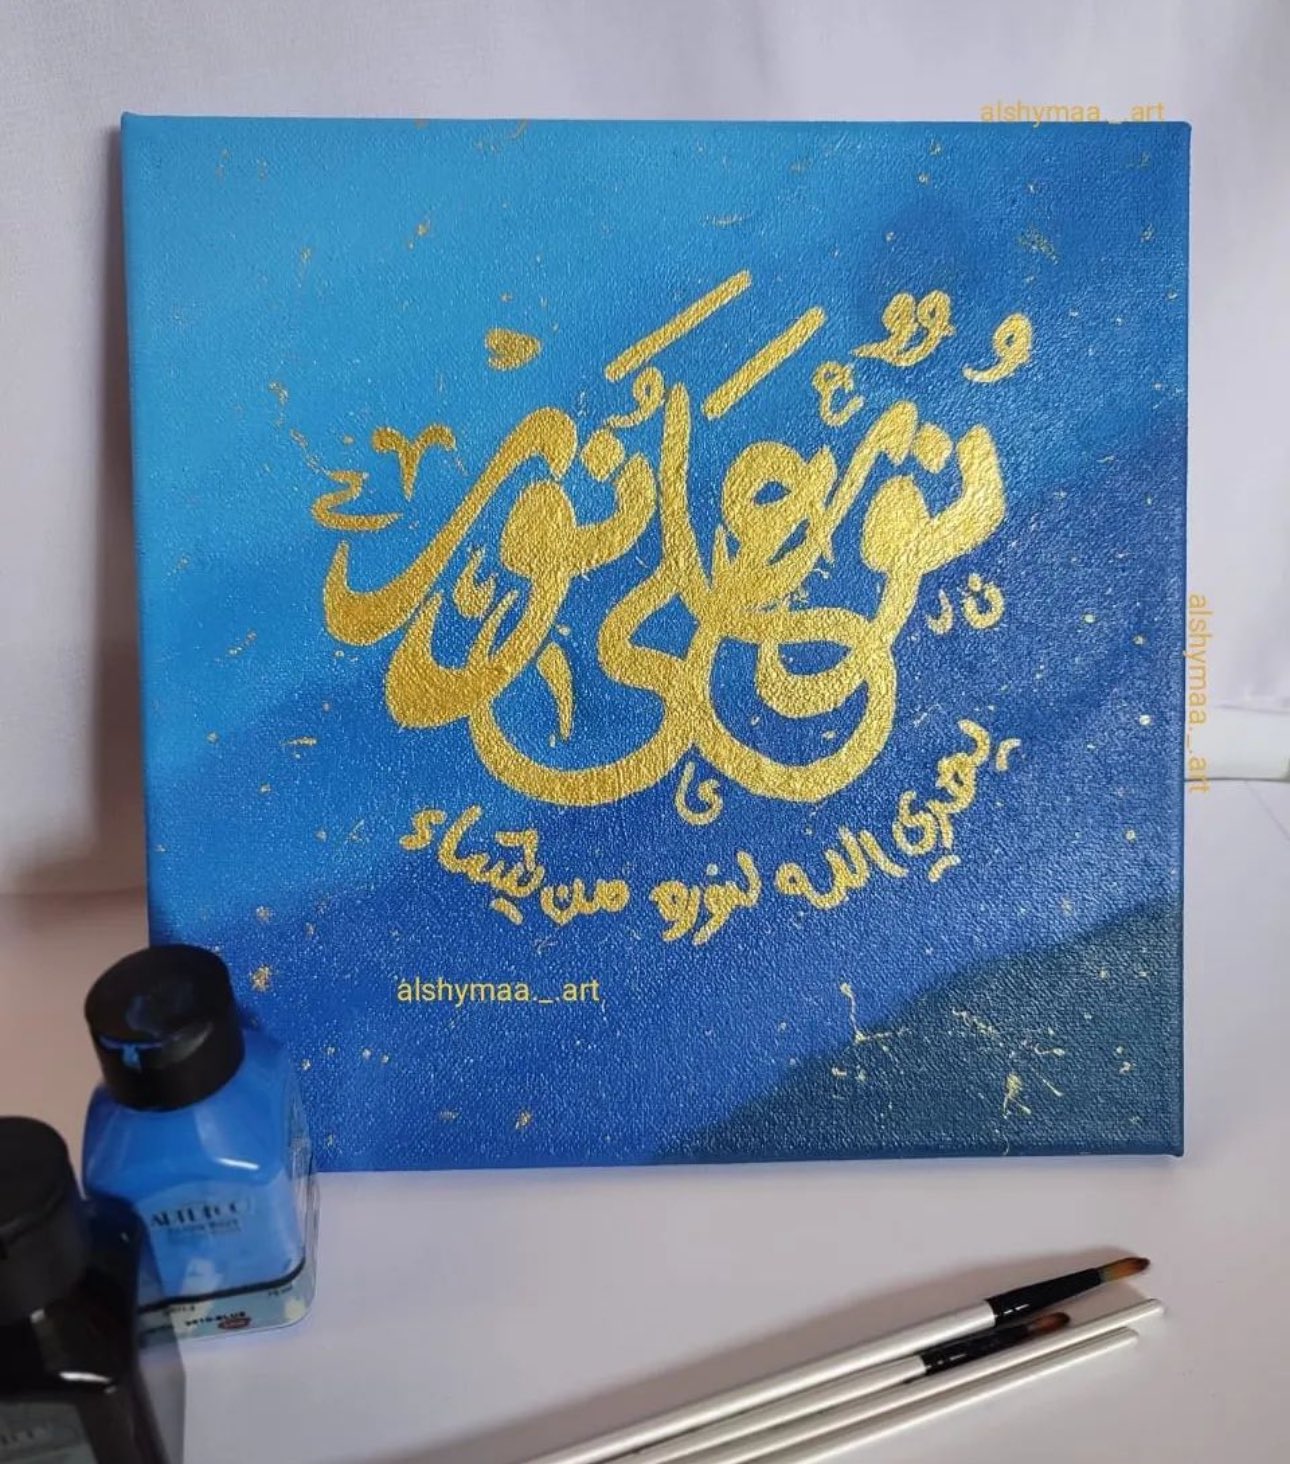 alshymaa._.art
نُّورٌ عَلَىٰ نُورٍ
يهدي الله لنوره من يشاء
alshymaa._.art
alshymaa._.art